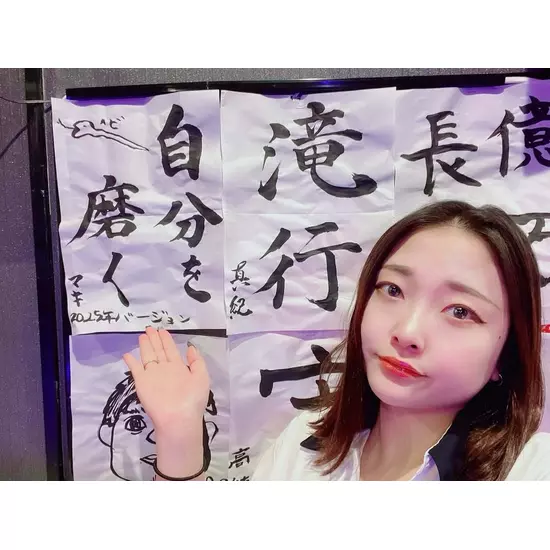 ヘビ
自分を
磨く
マキ
2025年バージョン
滝行
真紀
長
億
高